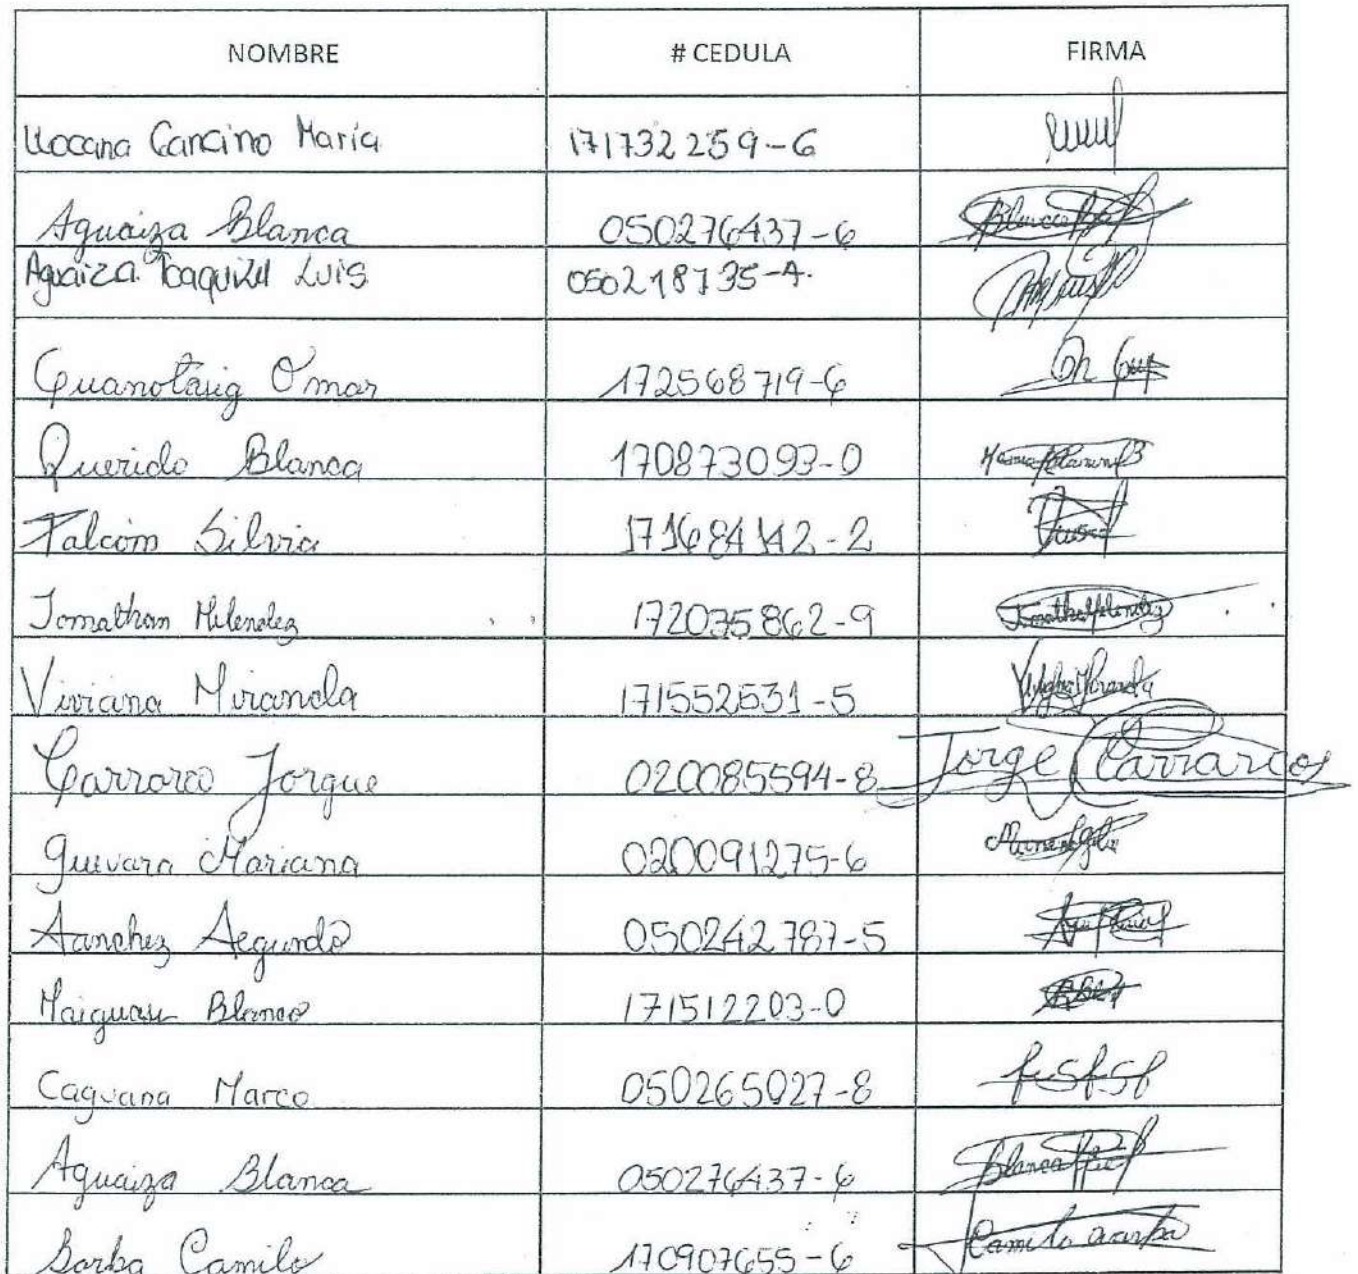 NOMBRE # CEDULA FIRMA
Llocana Cancino María 171732259-6
Aguaiza Blanca 050276437-6
Aguaiza Toaquiza Luis 050218735-4.
Guanotasig Omar 172568719-6
Querido Blanca 170873093-0
Falcom Silvia 171684142-2
Jonathan Melendez 172035862-9
Viviana Miranda 171552531-5 Viviana Miranda
Carrarco Jorgue 020085594-8 Jorge Carrarcos
Guevara Mariana 020091275-6
Sanchez Segundo 050242787-5
Blanca 171512203-0
Caguana Marco 050265027-8
Aguaiza Blanca 050276437-6 Blanca
Barba Camilo 170907655-6 Camilo